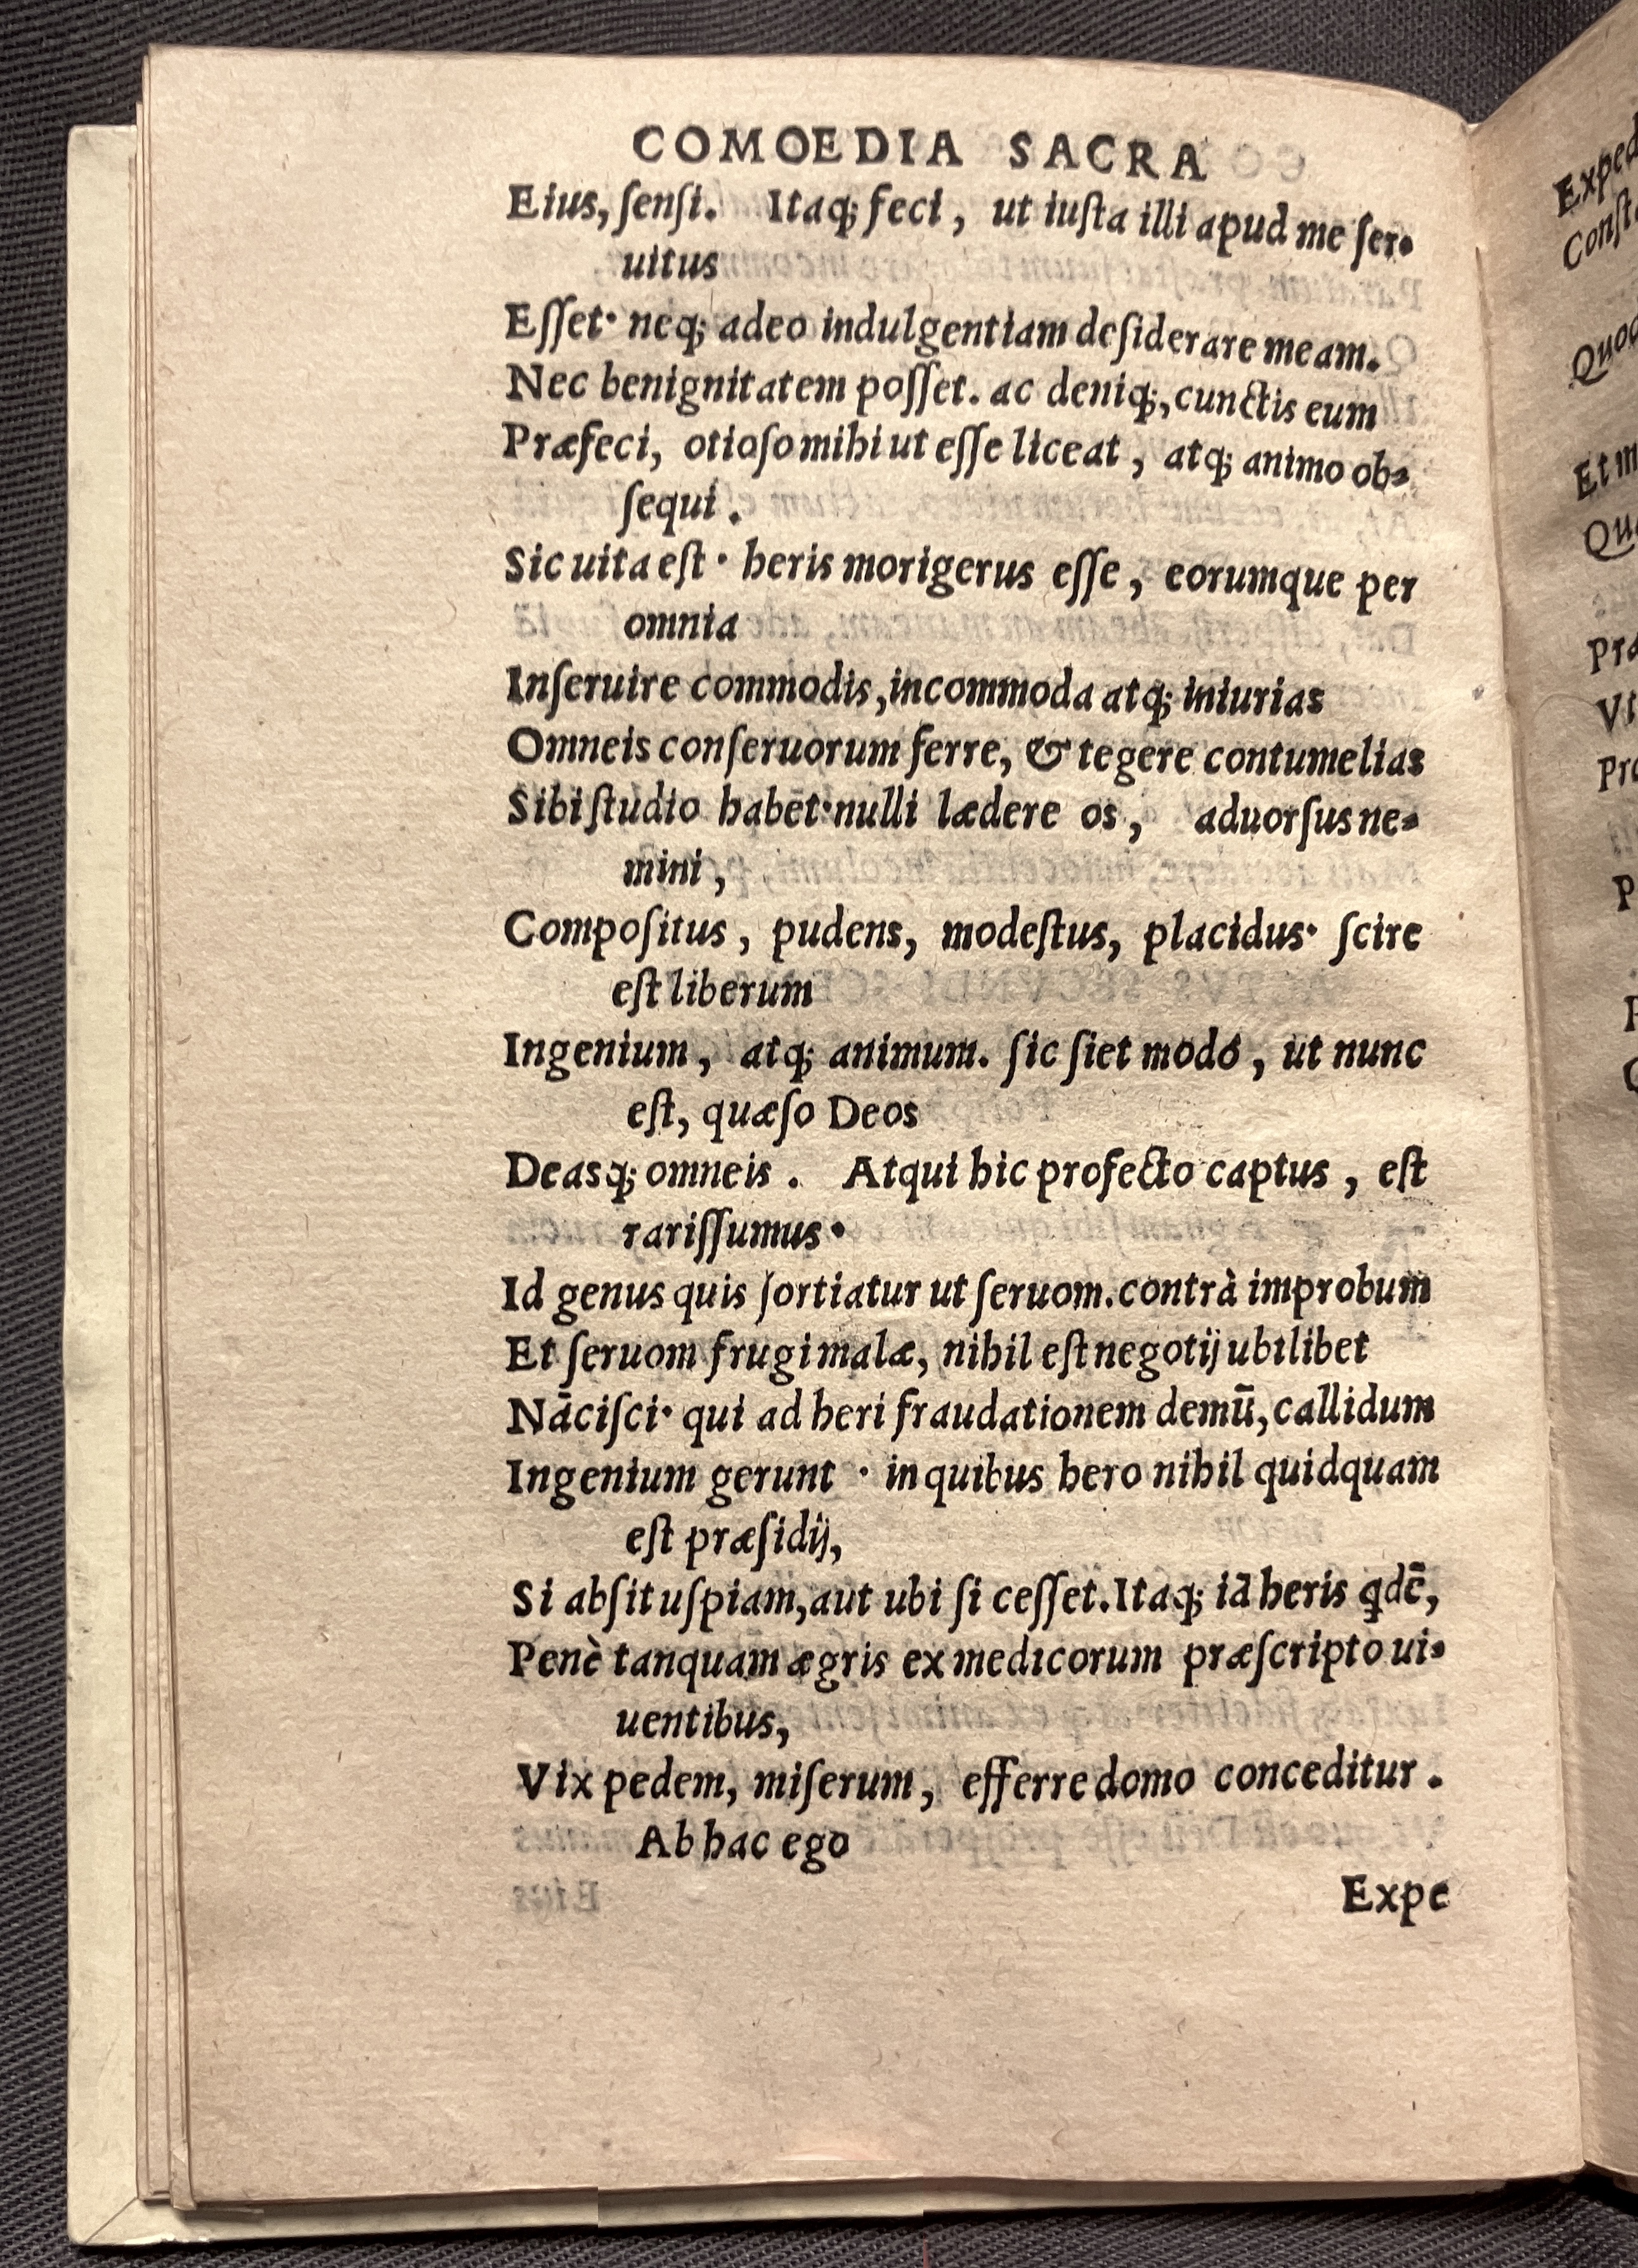 COMOEDIA SACRA
Eius, ſenſi. Itaq; feci, ut iuſta illi apud me ſer-
uitus
Eſſet· neq; adeo indulgentiam deſiderare meam.
Nec benignitatem poſſet. ac deniq;, cunctis eum
Præfeci, otioſo mihi ut eſſe liceat, atq; animo ob-
ſequi.
Sic uita eſt· heris morigerus eſſe, eorumque per
omnia
Inſeruire commodis, incommoda atq; iniurias
Omneis conſeruorum ferre, & tegere contumelias
Sibi ſtudio habet· nulli lædere os, aduorſus ne-
mini,
Compoſitus, pudens, modeſtus, placidus· ſcire
eſt liberum
Ingenium, atq; animum. ſic ſiet modò, ut nunc
eſt, quæſo Deos
Deasq; omneis. Atqui hic profecto captus, eſt
rariſſumus·
Id genus quis ſortiatur ut ſeruom. contrà improbum
Et ſeruom frugi malæ, nihil eſt negotij ubilibet
Nāciſci· qui ad heri fraudationem demū, callidum
Ingenium gerunt· in quibus hero nihil quidquam
eſt præſidij,
Si abſit uſpiam, aut ubi ſi ceſſet. Itaq; iā heris qdē,
Penè tanquam ægris ex medicorum præſcripto ui-
uentibus,
Vix pedem, miſerum, efferre domo conceditur.
Ab hac ego
Expe